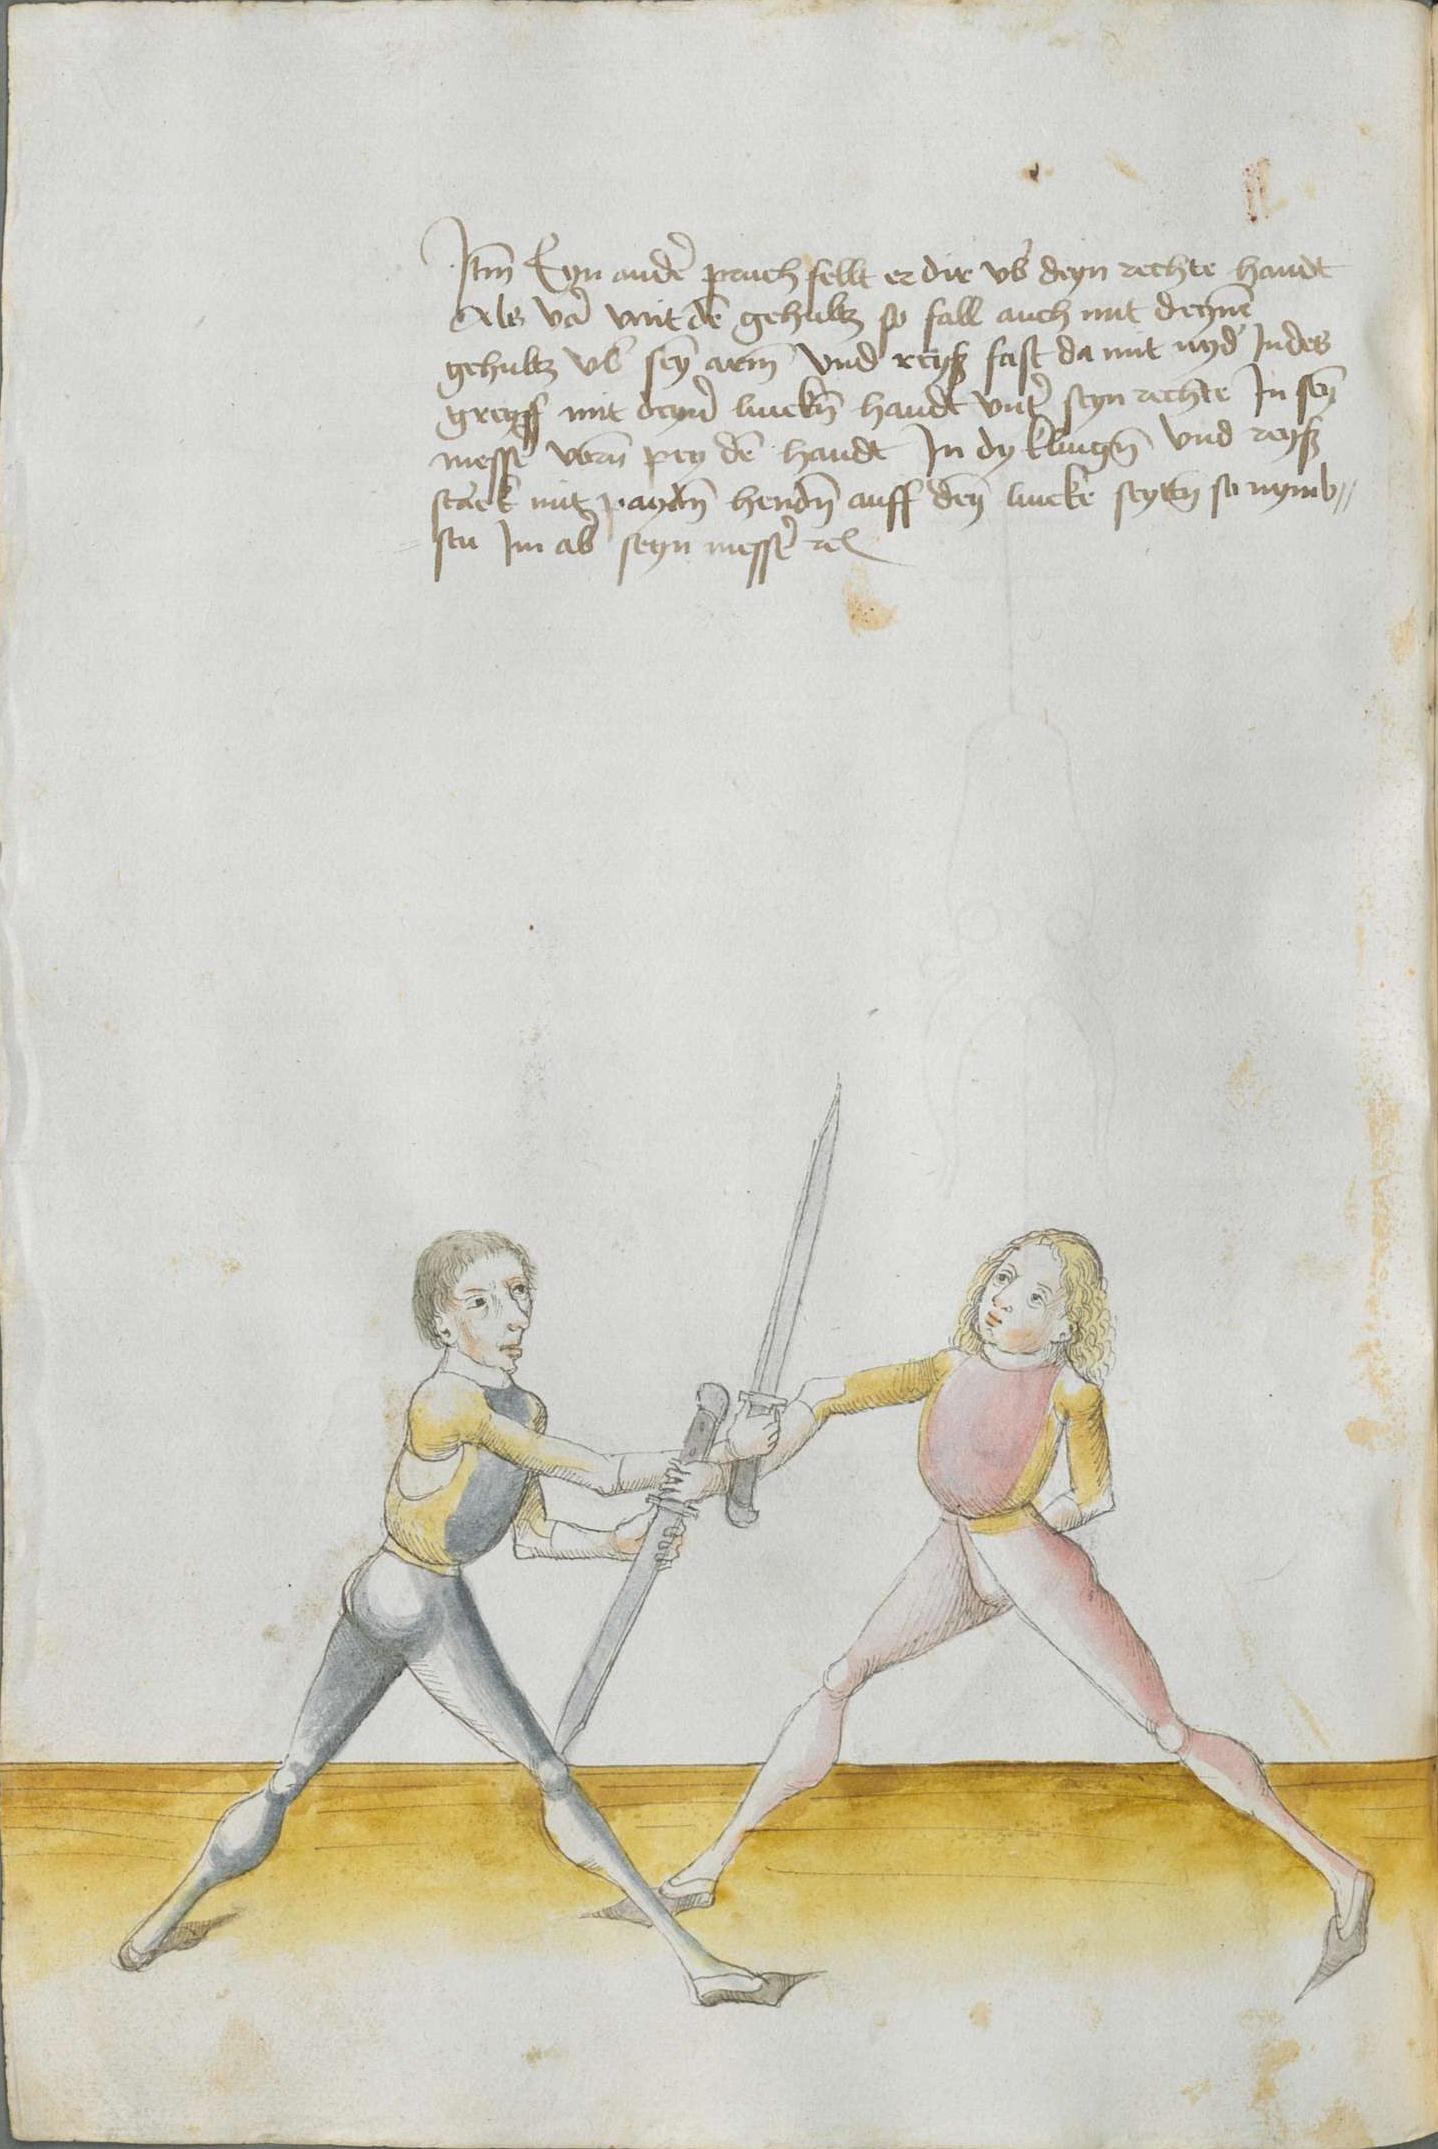 Itm̄ Eyn ander̄ pruch fellt er dir vb̄ deyn rechte handt
Als vor̄ mit dē gehultz so fall auch mit deynē
gehultz vb̄ sey̅ arm̄ vnd reyß fast da mit nyd̄ Indes
greyff mit deyner̄ linckn̄ handt vnter̄ seyn rechte In sey̅
messer̄ vorn̄ pey dē handt In dy klingn̄ vnd reyß
starck mit paydn̄ hendn̄ auff deῑ lincke seytn̄ so nymb//
stu Im ab̄ seyn messer̄ rc